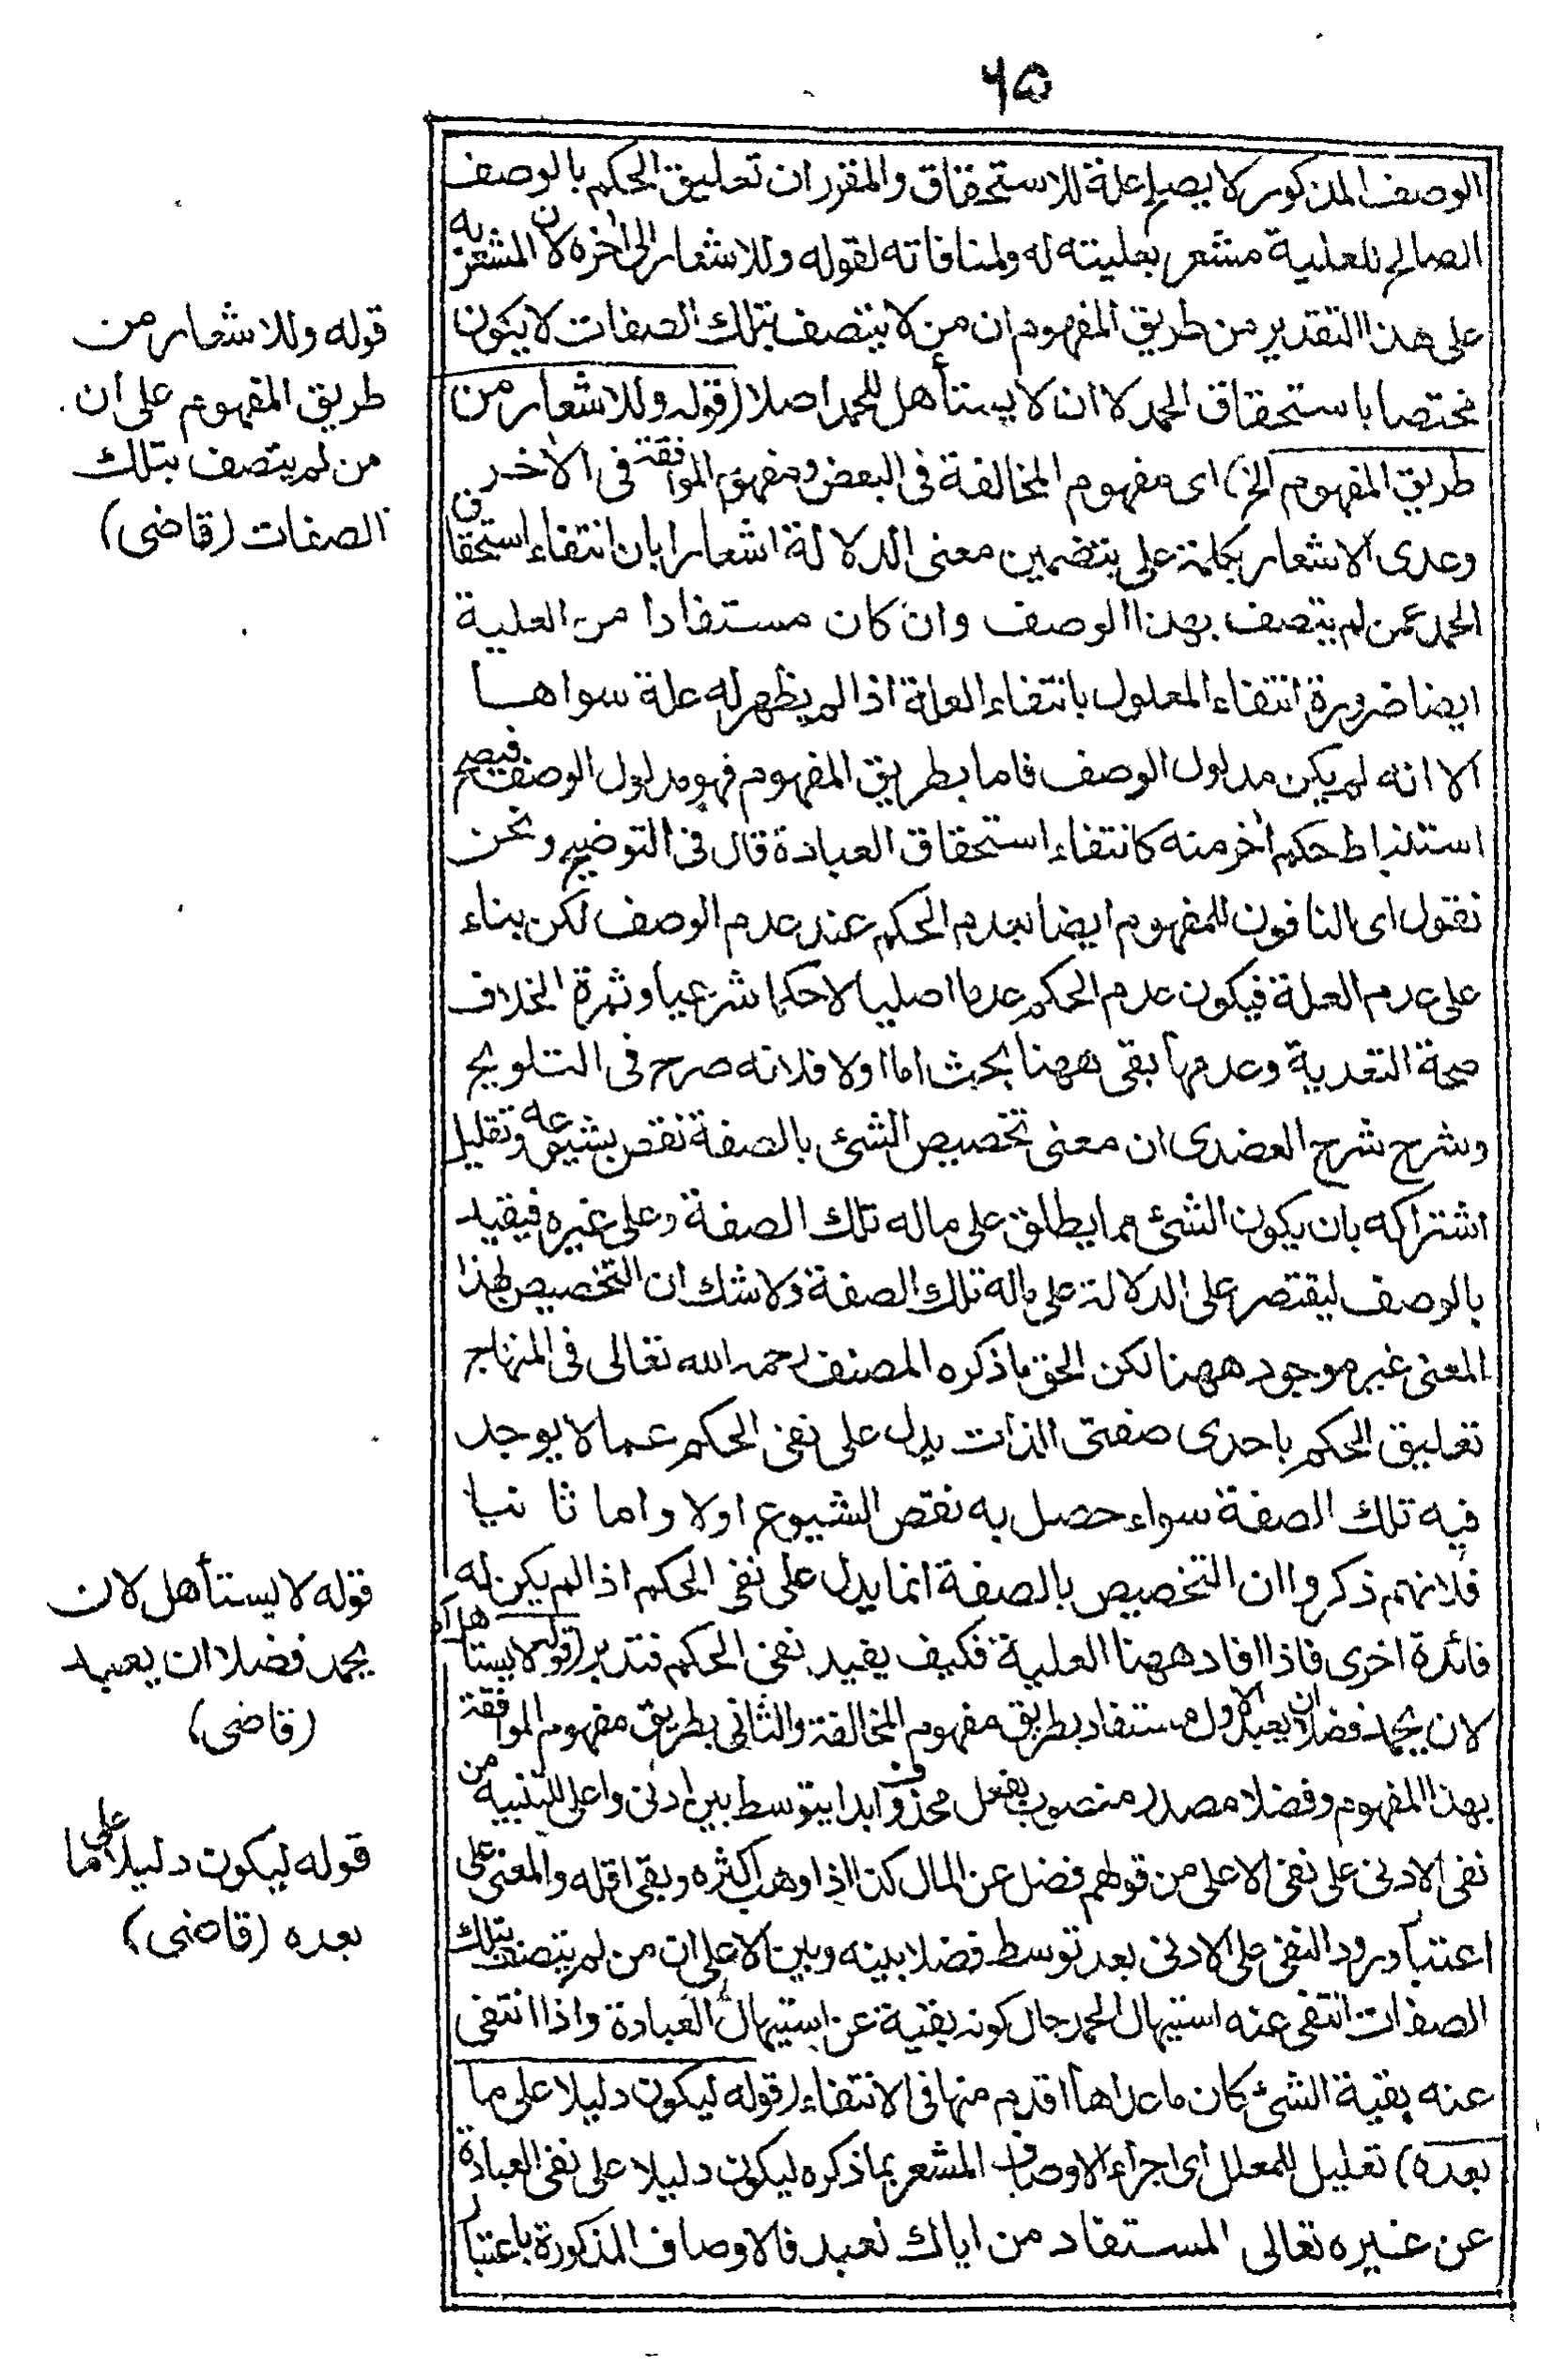 ٦٥
الوصف المذكور لا يصلح علة للاستحقاق والمقرر ان تعليق الحكم بالوصف
الصالح للعلية مشعر بعليته له ولمنافاته لقوله وللاشعار الى اخره لان المشعر به
على هذا التقدير من طريق المفهوم ان من لا يتصف بتلك الصفات لا يكون
مختصا باستحقاق الحمد لا ان لا يستأهل للحمد اصلا (قوله وللاشعار من
طريق المفهوم الخ) اى مفهوم المخالفة فى البعض ومفهوم الموافقة فى الاخر
وعدى الاشعار بكلمة على بتضمين معنى الدلالة اشعارا بان انتفاء استحقاق
الحمد عمن لم يتصف بهذا الوصف وان كان مستفادا من العلية
ايضا ضرورة انتفاء المعلول بانتفاء العلة اذا لم يظهر له علة سواها
الا انه لم يكن مدلول الوصف فاما بطريق المفهوم فهو مدلول الوصف فيصح
استنباط حكم اخر منه كانتفاء استحقاق العبادة قال فى التوضيح ونحن
نقول اى النافون للمفهوم ايضا بعدم الحكم عند عدم الوصف لكن بناء
على عدم العلة فيكون عدم الحكم عدما اصليا لا حكما شرعيا وثمرة الخلاف
صحة التعدية وعدمها بقى ههنا بحث اما اولا فلانه صرح فى التلويح
وشرح شرح العضدى ان معنى تخصيص الشئ بالصفة نقص شيوعه وتقليل
اشتراكه بان يكون الشئ مما يطلق على ماله تلك الصفة وعلى غيره فيقيد
بالوصف ليقتصر على الدلالة على ماله تلك الصفة ولا شك ان التخصيص بهذا
المعنى غير موجود ههنا لكن الحق ما ذكره المصنف رحمه الله تعالى فى المنهاج
تعليق الحكم باحدى صفتى الذات يدل على نفى الحكم عما لا يوجد
فيه تلك الصفة سواء حصل به نقص الشيوع اولا واما ثانيا
فلانهم ذكروا ان التخصيص بالصفة انما يدل على نفى الحكم اذا لم يكن له
فائدة اخرى فاذا افاد ههنا العلية فكيف يفيد نفى الحكم فتدبر (قوله لا يستأهل
لان يحمد فضلا ان يعبد) الاول مستفاد بطريق مفهوم المخالفة والثانى بطريق مفهوم الموافقة
بهذا المفهوم وفضلا مصدر منصوب بفعل محذوف ابدا يتوسط بين ادنى واعلى للتنبيه من
نفى الادنى على نفى الاعلى من قولهم فضل عن المال كذا اذا وهب اكثره وبقى اقله والمعنى على
اعتبار ورود النفى على الادنى بعد توسط فضلا بينه وبين الاعلى ان من لم يتصف بتلك
الصفات انتفى عنه استيهال الحمد حال كونه بقية عن استيهال العبادة واذا انتفى
عنه بقية الشئ كان ما عداها اقدم منها فى الانتفاء (قوله ليكون دليلا على ما
بعده) تعليل للمعلل اى اجراء الاوصاف المشعر بما ذكره ليكون دليلا على نفى العبادة
عن غيره تعالى المستفاد من اياك نعبد فالاوصاف المذكورة باعتبار
قوله وللاشعار من
طريق المفهوم على ان
من لم يتصف بتلك
الصفات (قاضى)
قوله لا يستأهل لان
يحمد فضلا ان يعبد
(قاضى)
قوله ليكون دليلا على ما
بعده (قاضى)